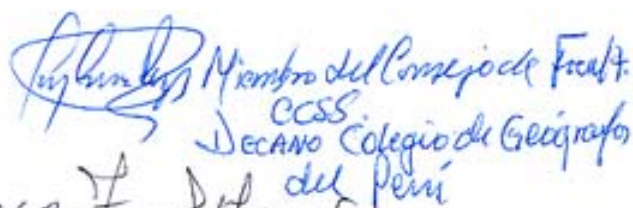 Miembro del Consejo de Facult.
CCSS.
DECANO Colegio de Geógrafos
del Perú